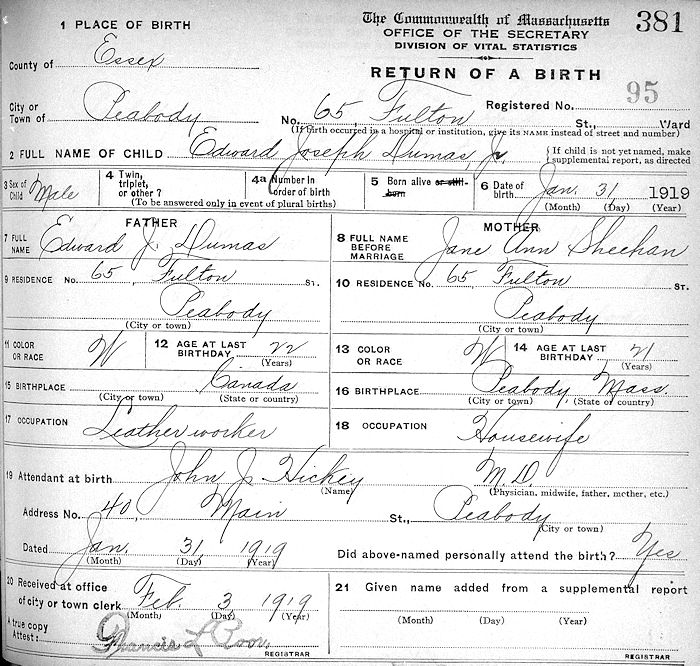 The Commonwealth of Massachusetts 381
1 PLACE OF BIRTH OFFICE OF THE SECRETARY
DIVISION OF VITAL STATISTICS
County of Essex
RETURN OF A BIRTH
City or Town of Peabody Registered No. 95
No. 65, Fulton St., Ward
(If birth occurred in a hospital or institution, give its NAME instead of street and number)
2 FULL NAME OF CHILD Edward Joseph Dumas, Jr { If child is not yet named, make supplemental report, as directed
3 Sex of Child Male 4 Twin, triplet, or other ? 4a Number in order of birth 5 Born alive or still-born 6 Date of birth Jan. 31, 1919
(To be answered only in event of plural births) (Month) (Day) (Year)
FATHER MOTHER
7 FULL NAME Edward J. Dumas 8 FULL NAME BEFORE MARRIAGE Jane Ann Sheehan
9 RESIDENCE No. 65, Fulton ST. 10 RESIDENCE No. 65, Fulton ST.
Peabody Peabody
(City or town) (City or town)
11 COLOR OR RACE W 12 AGE AT LAST BIRTHDAY 22 (Years) 13 COLOR OR RACE W 14 AGE AT LAST BIRTHDAY 21 (Years)
15 BIRTHPLACE Canada 16 BIRTHPLACE Peabody, Mass.
(City or town) (State or country) (City or town) (State or country)
17 OCCUPATION Leather worker 18 OCCUPATION Housewife
19 Attendant at birth John J. Hickey M.D.
(Name) (Physician, midwife, father, mother, etc.)
Address No. 40, Main St., Peabody
(City or town)
Dated Jan. 31, 1919 Did above-named personally attend the birth? Yes
(Month) (Day) (Year)
20 Received at office of city or town clerk Feb. 3 1919 21 Given name added from a supplemental report
(Month) (Day) (Year) (Month) (Day) (Year)
A true copy Attest: Francis L. Poor,
REGISTRAR REGISTRAR